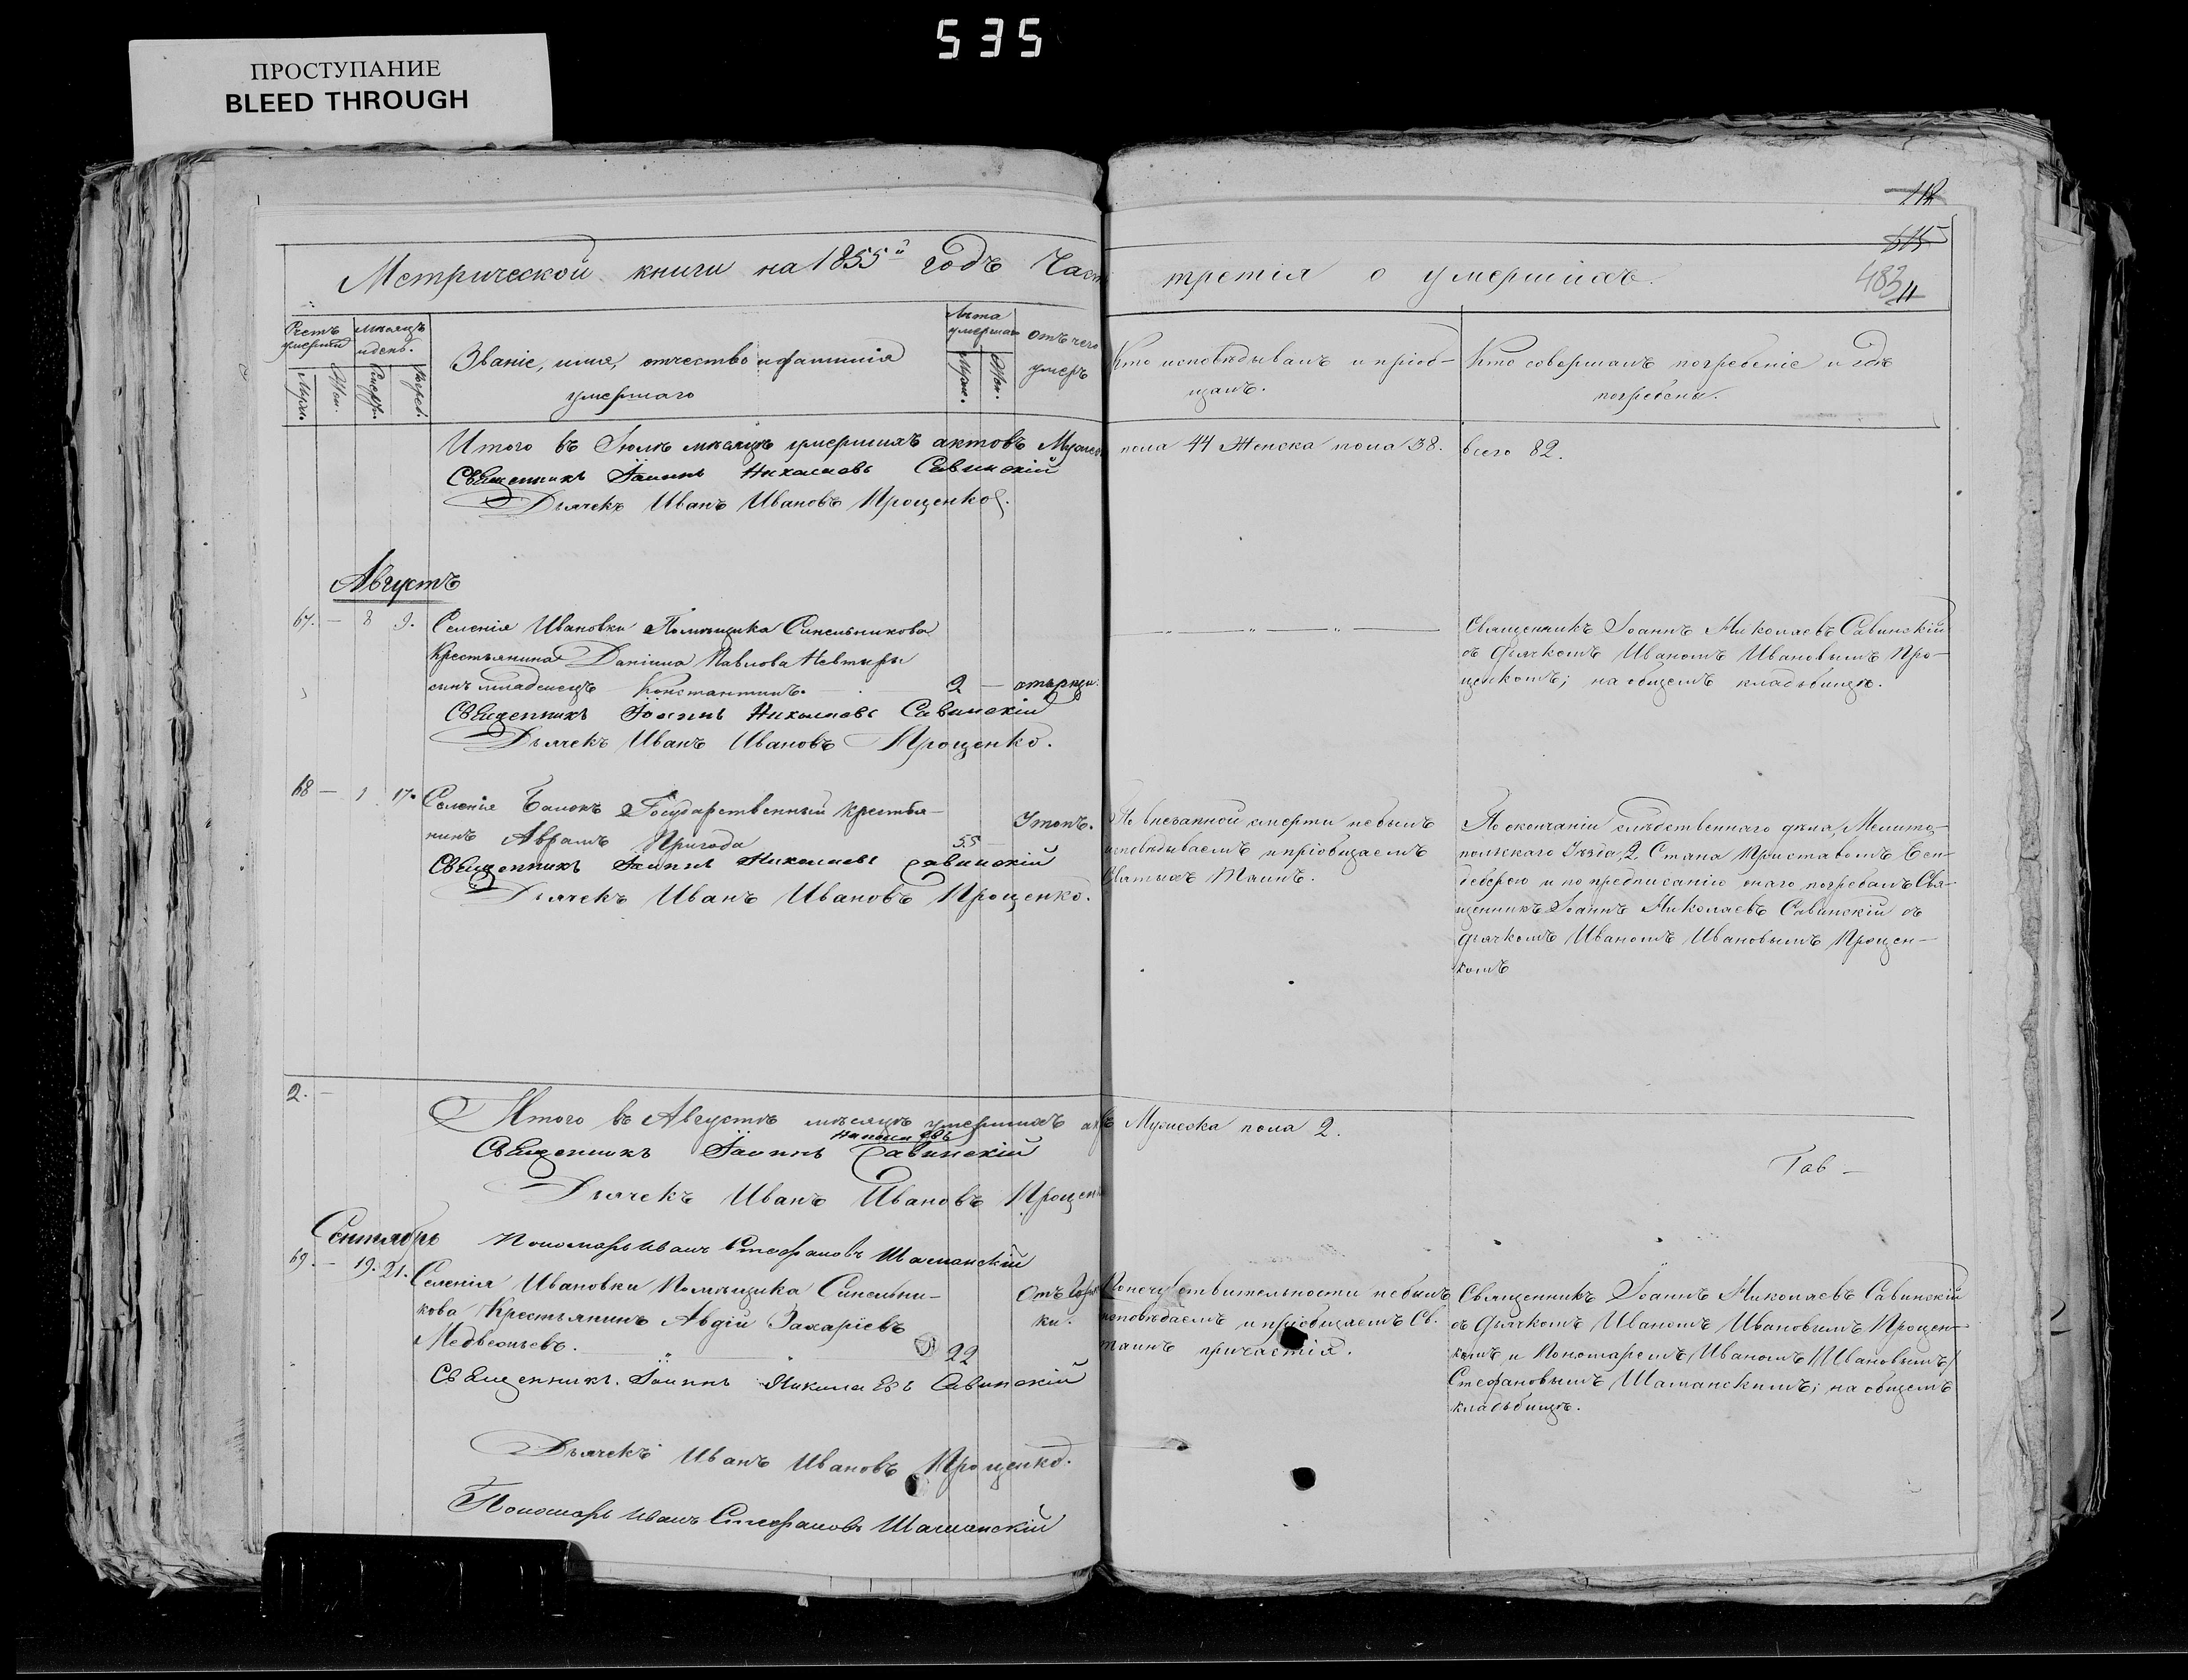 535
ПРОСТУПАНИЕ
BLEED THROUGH
112
515
483
Метрической книги на 1855й годъ Часть третія о умершихъ.
Счетъ умерш.
Мѣсяцъ и день.
Муж.
Жен.
Смерт.
Погреб.
Званіе, имя, отчество и фамилія
умершаго
Лѣта умершаго
Муж.
Жен.
отъ чего
умеръ
Кто исповѣдывалъ и пріоб-
щалъ.
Кто совершалъ погребеніе и гдѣ
погребены.
Итого въ Іюлѣ мѣсяцѣ умершихъ актовъ Мужеска пола 44 Женска пола 38. всего 82.
Священникъ Іоаннъ Николаевъ Савинскій
Дьячекъ Иванъ Ивановъ Проценко.
Августъ
67. — 8 9. Селенія Ивановки Помѣщика Синельникова
Крестьянина Даніила Павлова Невтыры
сынъ младенецъ Константинъ. 2 —
Священникъ Іоаннъ Николаевъ Савинскій
съ дьячкомъ Иваномъ Ивановымъ Про-
ценкомъ; на общемъ кладьбищѣ.
Священникъ Іоаннъ Николаевъ Савинскій
Дьячекъ Иванъ Ивановъ Проценко.
68 — 1 17. Селенія Балокъ Государственный крестья-
нинъ Аврамъ Пригода 55
Утопъ.
По внезапной смерти небылъ
исповѣдываемъ и пріобщаемъ
Святыхъ Таинъ.
По окончаніи слѣдственнаго дѣла, Мелито-
польскаго Уѣзда, 2, Стана Приставомъ
и по предписанію онаго погребалъ Свя-
щенникъ Іоаннъ Николаевъ Савинскій съ
дьячкомъ Иваномъ Ивановымъ Процен-
комъ
Священникъ Іоаннъ Николаевъ Савинскій
Дьячекъ Иванъ Ивановъ Проценко.
2. —
Итого въ Августѣ мѣсяцѣ умершихъ Мужеска пола 2.
Николаевъ
Священникъ Іоаннъ Савинскій
Таб —
Дьячекъ Иванъ Ивановъ Проценко
Пономарь Иванъ Стефановъ Шаманскій
Сентябрь
69. — 19. 21. Селенія Ивановки Помѣщика Синельни-
кова Крестьянинъ Авдій Захаріевъ
Медведьевъ. 22
Отъ Горяч
ки.
По нечувствительности небылъ
исповѣдаемъ и пріобщаемъ Св.
таинъ причастія.
Священникъ Іоаннъ Николаевъ Савинскій
съ дьячкомъ Иваномъ Ивановымъ Процен-
комъ и Пономаремъ Иваномъ /Ивановымъ/
Стефановымъ Шаманскимъ; на общемъ
кладьбищѣ.
Священникъ Іоаннъ Николаевъ Савинскій
Дьячекъ Иванъ Ивановъ Проценко.
Пономарь Иванъ Стефановъ Шаманскій